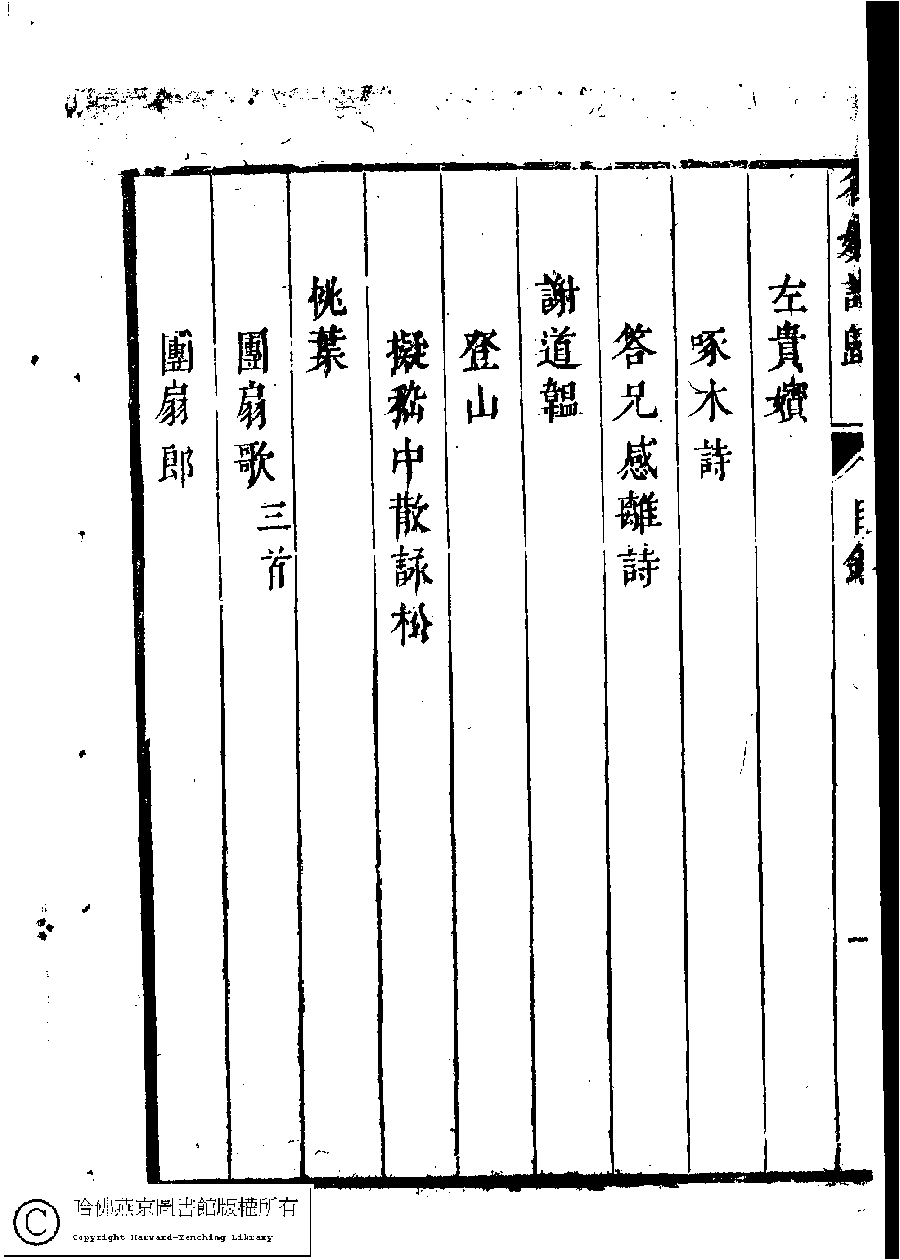 名媛詩歸
目錄
一
左貴嬪
啄木詩
答兄感離詩
謝道韞
登山
擬嵇中散詠松
桃葉
團扇歌三首
團扇郎
哈佛燕京圖書館版權所有
Copyright Harvard-Yenching Library